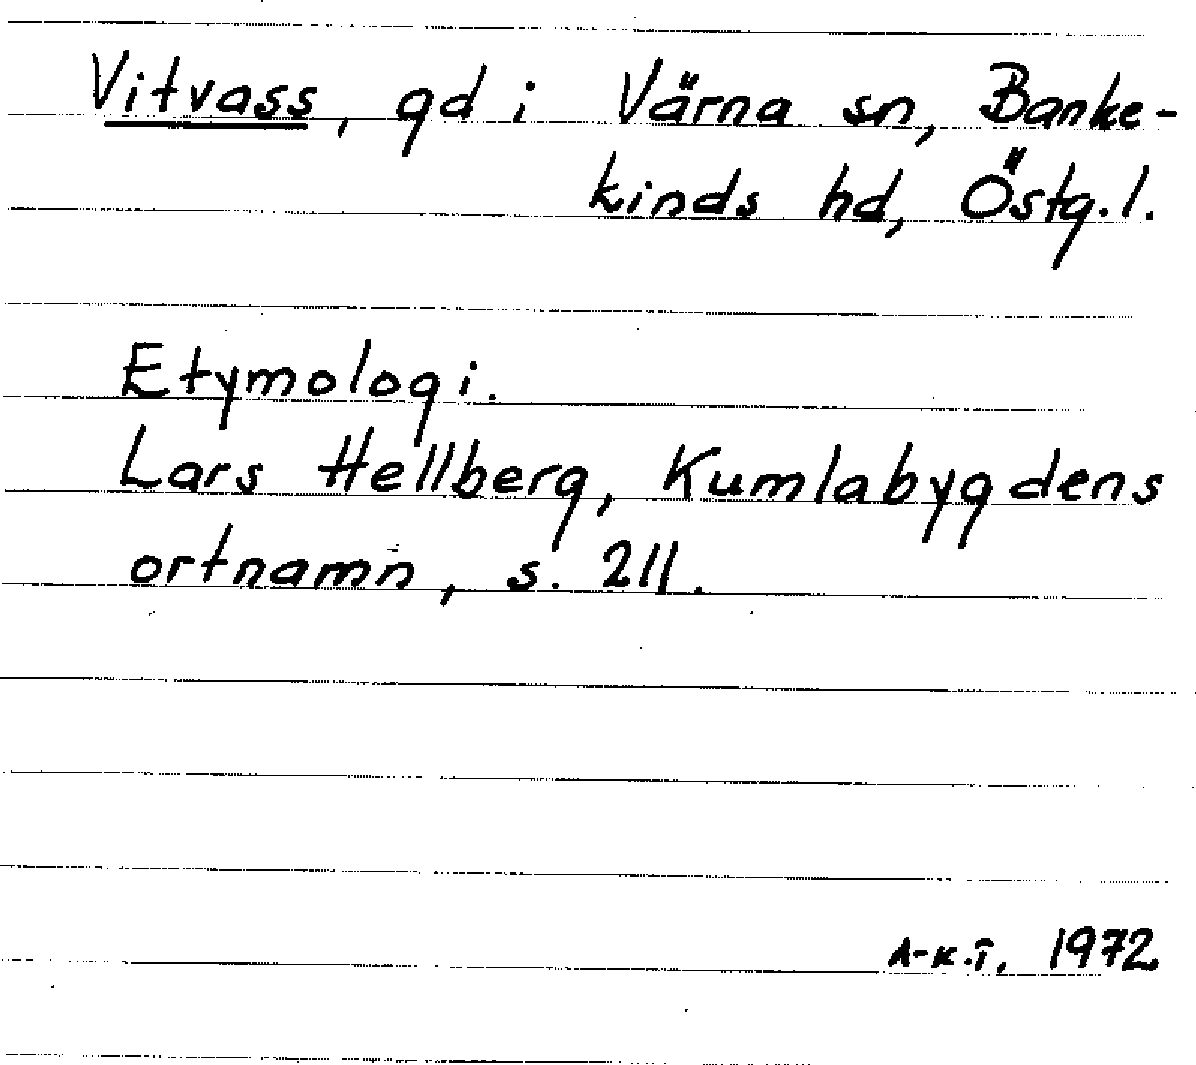 Vitvass, gd i Värna sn, Banke-
kinds hd, Östg.l.
Etymologi.
Lars Hellberg, Kumlabygdens
ortnamn, s. 211.
A-K.T, 1972